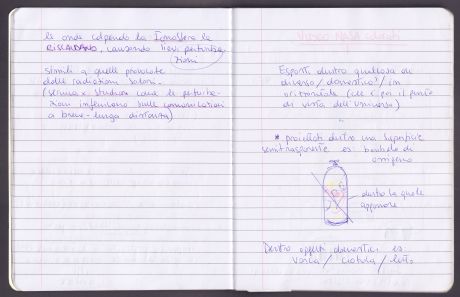 le onde colpendo la Ionosfera la
RISCALDANO, causando lievi perturba
zioni
simili a quelle provocate
dalle radiazioni solari.
(serve x studiare come le perturba-
zioni influiscono sulle comunicazioni
a breve-lunga distanza)
Video NASA
Esporli dentro qualcosa di
diverso/domestico/in
orizzontale (che è poi il punto
di vista dell'universo)
* proiettati dentro una superficie
semitrasparente es bombola di
ossigeno
dentro la quale
appaiono
Dentro oggetti domestici es
vasca/ciotola/letto